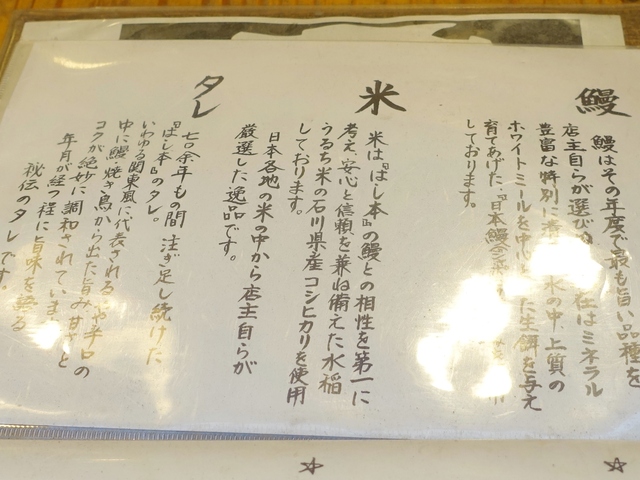 鰻
鰻はその年度で最も旨い品種を
店主自らが選び はミネラル
豊富な特別に 水の中、上質の
ホワイトミールを中心 した生餌を与え
育てあげた、『日本鰻
しております。
米
米は『はし本』の鰻との相性を第一に
考え、安心と信頼を兼ね備えた水稲
うるち米の石川県産コシヒカリを使用
しております。
日本各地の米の中から店主自らが
厳選した逸品です。
タレ
七〇余年もの間 注ぎ足し続けた
『はし本』のタレ。
いわゆる関東風に代表される やや辛口の
中に鰻・焼き鳥から出た旨み、甘さと
コクが絶妙に調和されています
年月が経つ程に旨味を
秘伝のタレです。
☆
☆